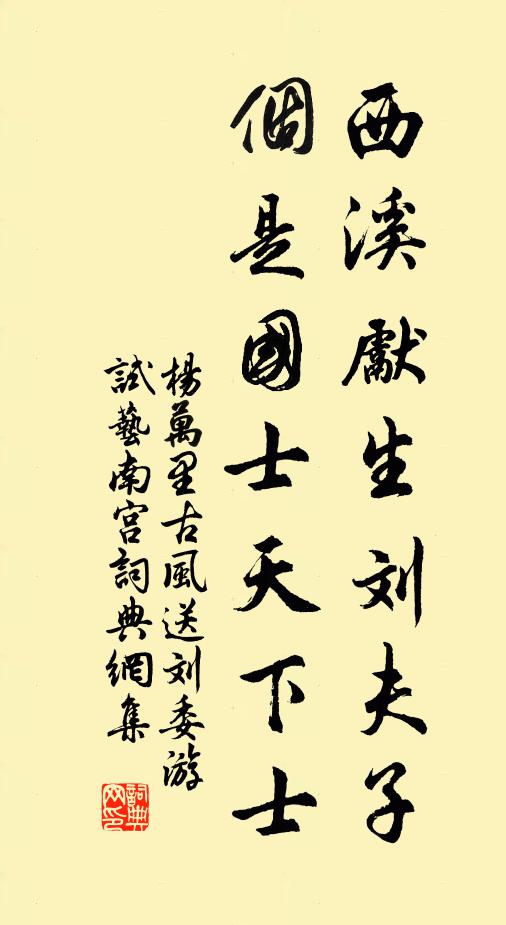 西溪獻生刘夫子
個是國士天下士
楊萬里古風送刘委游
試藝南宫詞典網集
詞典
网印